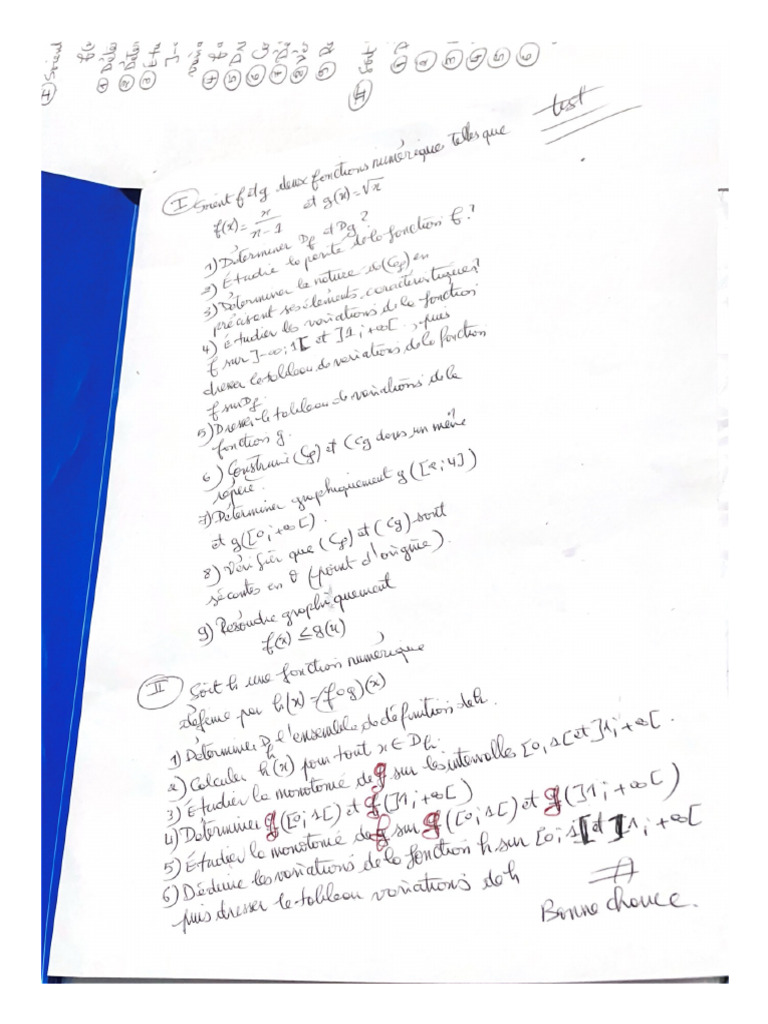 test
I Soient f et g deux fonctions numérique telles que
f(x)= x/(x-1) et g(x)=√x
1) Déterminer Df et Dg ?
2) Étudié la parité de la fonction f.?
3) Déterminer la nature de (Cf) en
précisant ses éléments caractéristiques?
4) étudier les variations de la fonction
f sur ]-∞;1[ et ]1;+∞[, puis
dresser le tableau de variations de la fonction
f sur Df.
5) Dresser le tableau de variations de la
fonction g.
6) Construire (Cf) et (Cg dans un même
repère.
7) Déterminer graphiquement g([2;4])
et g([0;+∞[).
8) Vérifier que (Cf) et (Cg) sont
sécantes en O (point d'origine).
9) Résoudre graphiquement
f(x) ≤ g(x)
II Soit h une fonction numérique
définie par h(x)=(fog)(x)
1) Déterminer Dh l'ensemble de définition de h.
2) Calculer h(x) pour tout x∈Dh.
3) Étudier la monotonie de g sur les intervalles [0,1[ et ]1;+∞[.
4) Déterminer g([0;1[) et g(]1;+∞[)
5) Étudier la monotonie de f sur g([0;1[) et g(]1;+∞[)
6) Déduire les variations de la fonction h sur [0;1[ et ]1;+∞[
puis dresser le tableau variations de h
Bonne chance.